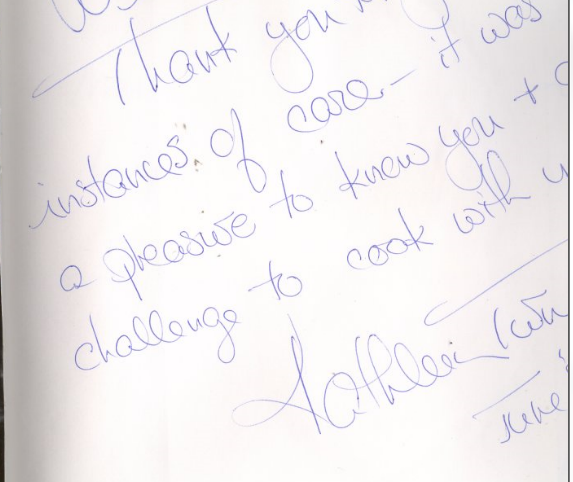 Thank you
instances of care - it was
a pleasure to know you +
challenge to cook with
Kathleen
June